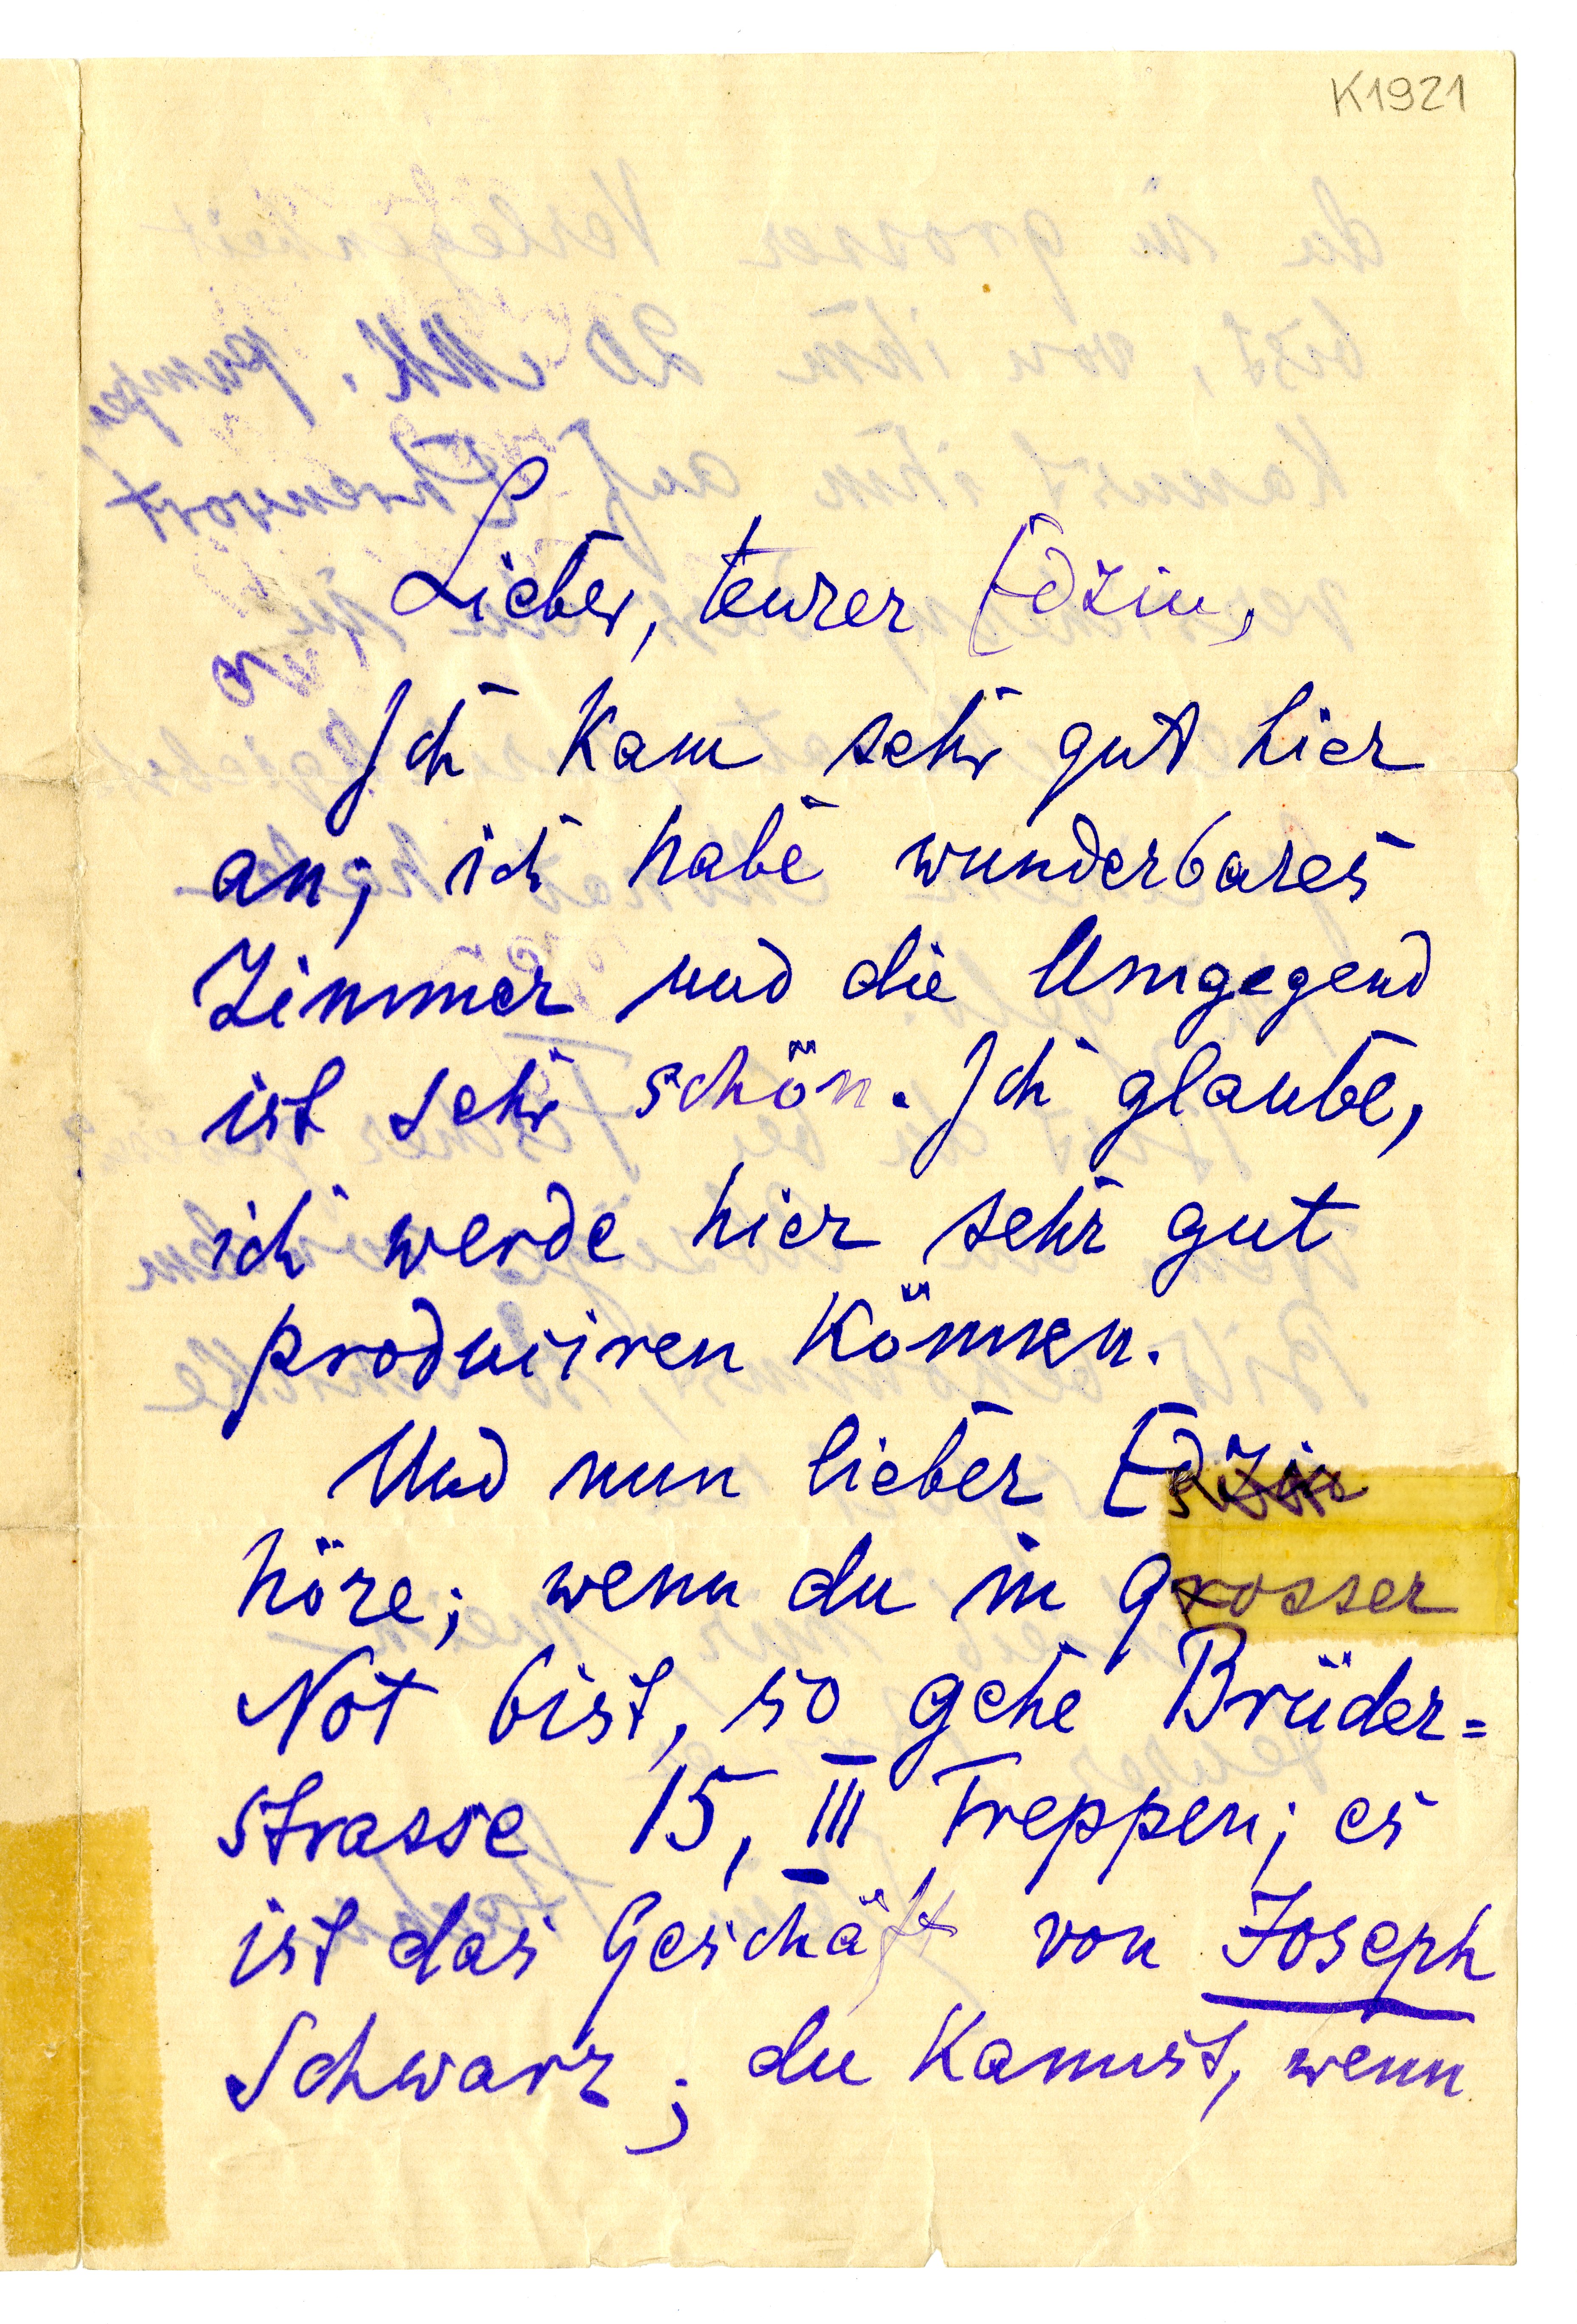 K1921
Lieber, teurer Edzin,
Ich kam sehr gut hier
an; ich habe wunderbares
Zimmer und die Umgegend
ist sehr schön. Ich glaube,
ich werde hier sehr gut
produciren können.
Und nun lieber Edzin
höre; wenn du in grosser
Not bist, so gehe Brüder=
strasse 15, III Treppen; es
ist das Geschäft von Joseph
Schwarz; du kannst, wenn